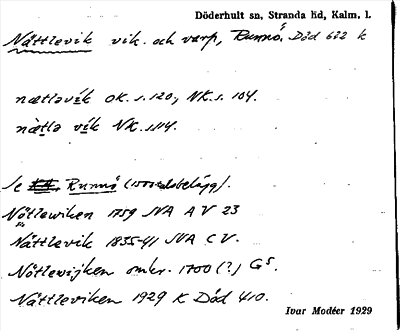 Döderhult sn, Stranda hd, Kalm. l.
Nåttlevik vik. och varp, Runnö. Död 622 k
nætləvík OK. s. 120, NK. s. 104.
nætlə vík NK. s. 114.
Se Runnö (1500talsbelägg).
Nötlewiken 1759 JVA A V 23
Nåttlevik 1835-41 JVA C V.
Nötlewijken omkr. 1700 (?) GS.
Nåttleviken 1929 K Död 410.
Ivar Modéer 1929